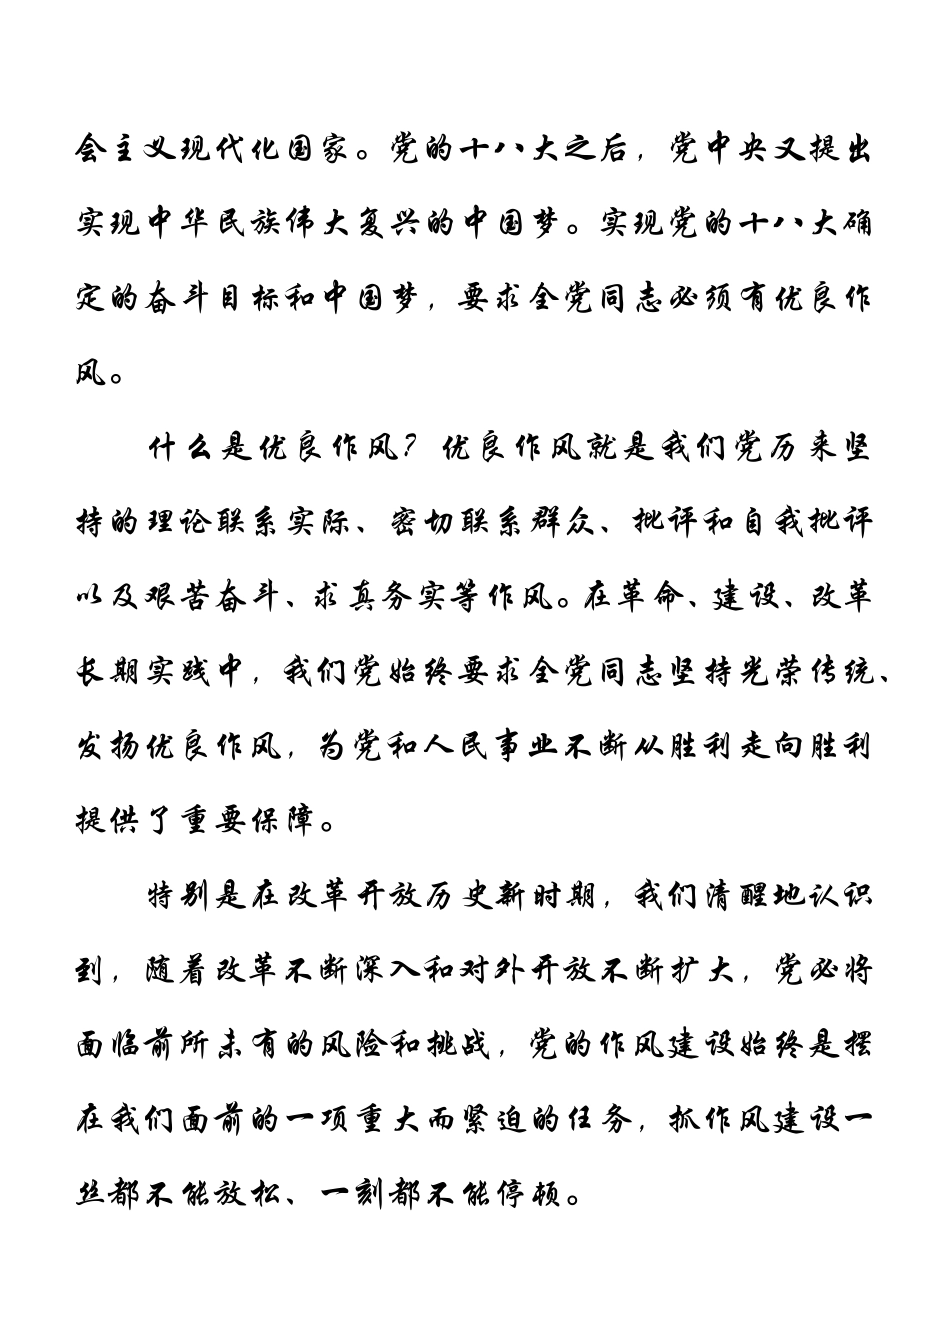 会主义现代化国家。党的十八大之后，党中央又提出
实现中华民族伟大复兴的中国梦。实现党的十八大确
定的奋斗目标和中国梦，要求全党同志必须有优良作
风。
什么是优良作风？优良作风就是我们党历来坚
持的理论联系实际、密切联系群众、批评和自我批评
以及艰苦奋斗、求真务实等作风。在革命、建设、改革
长期实践中，我们党始终要求全党同志坚持光荣传统、
发扬优良作风，为党和人民事业不断从胜利走向胜利
提供了重要保障。
特别是在改革开放历史新时期，我们清醒地认识
到，随着改革不断深入和对外开放不断扩大，党必将
面临前所未有的风险和挑战，党的作风建设始终是摆
在我们面前的一项重大而紧迫的任务，抓作风建设一
丝都不能放松、一刻都不能停顿。